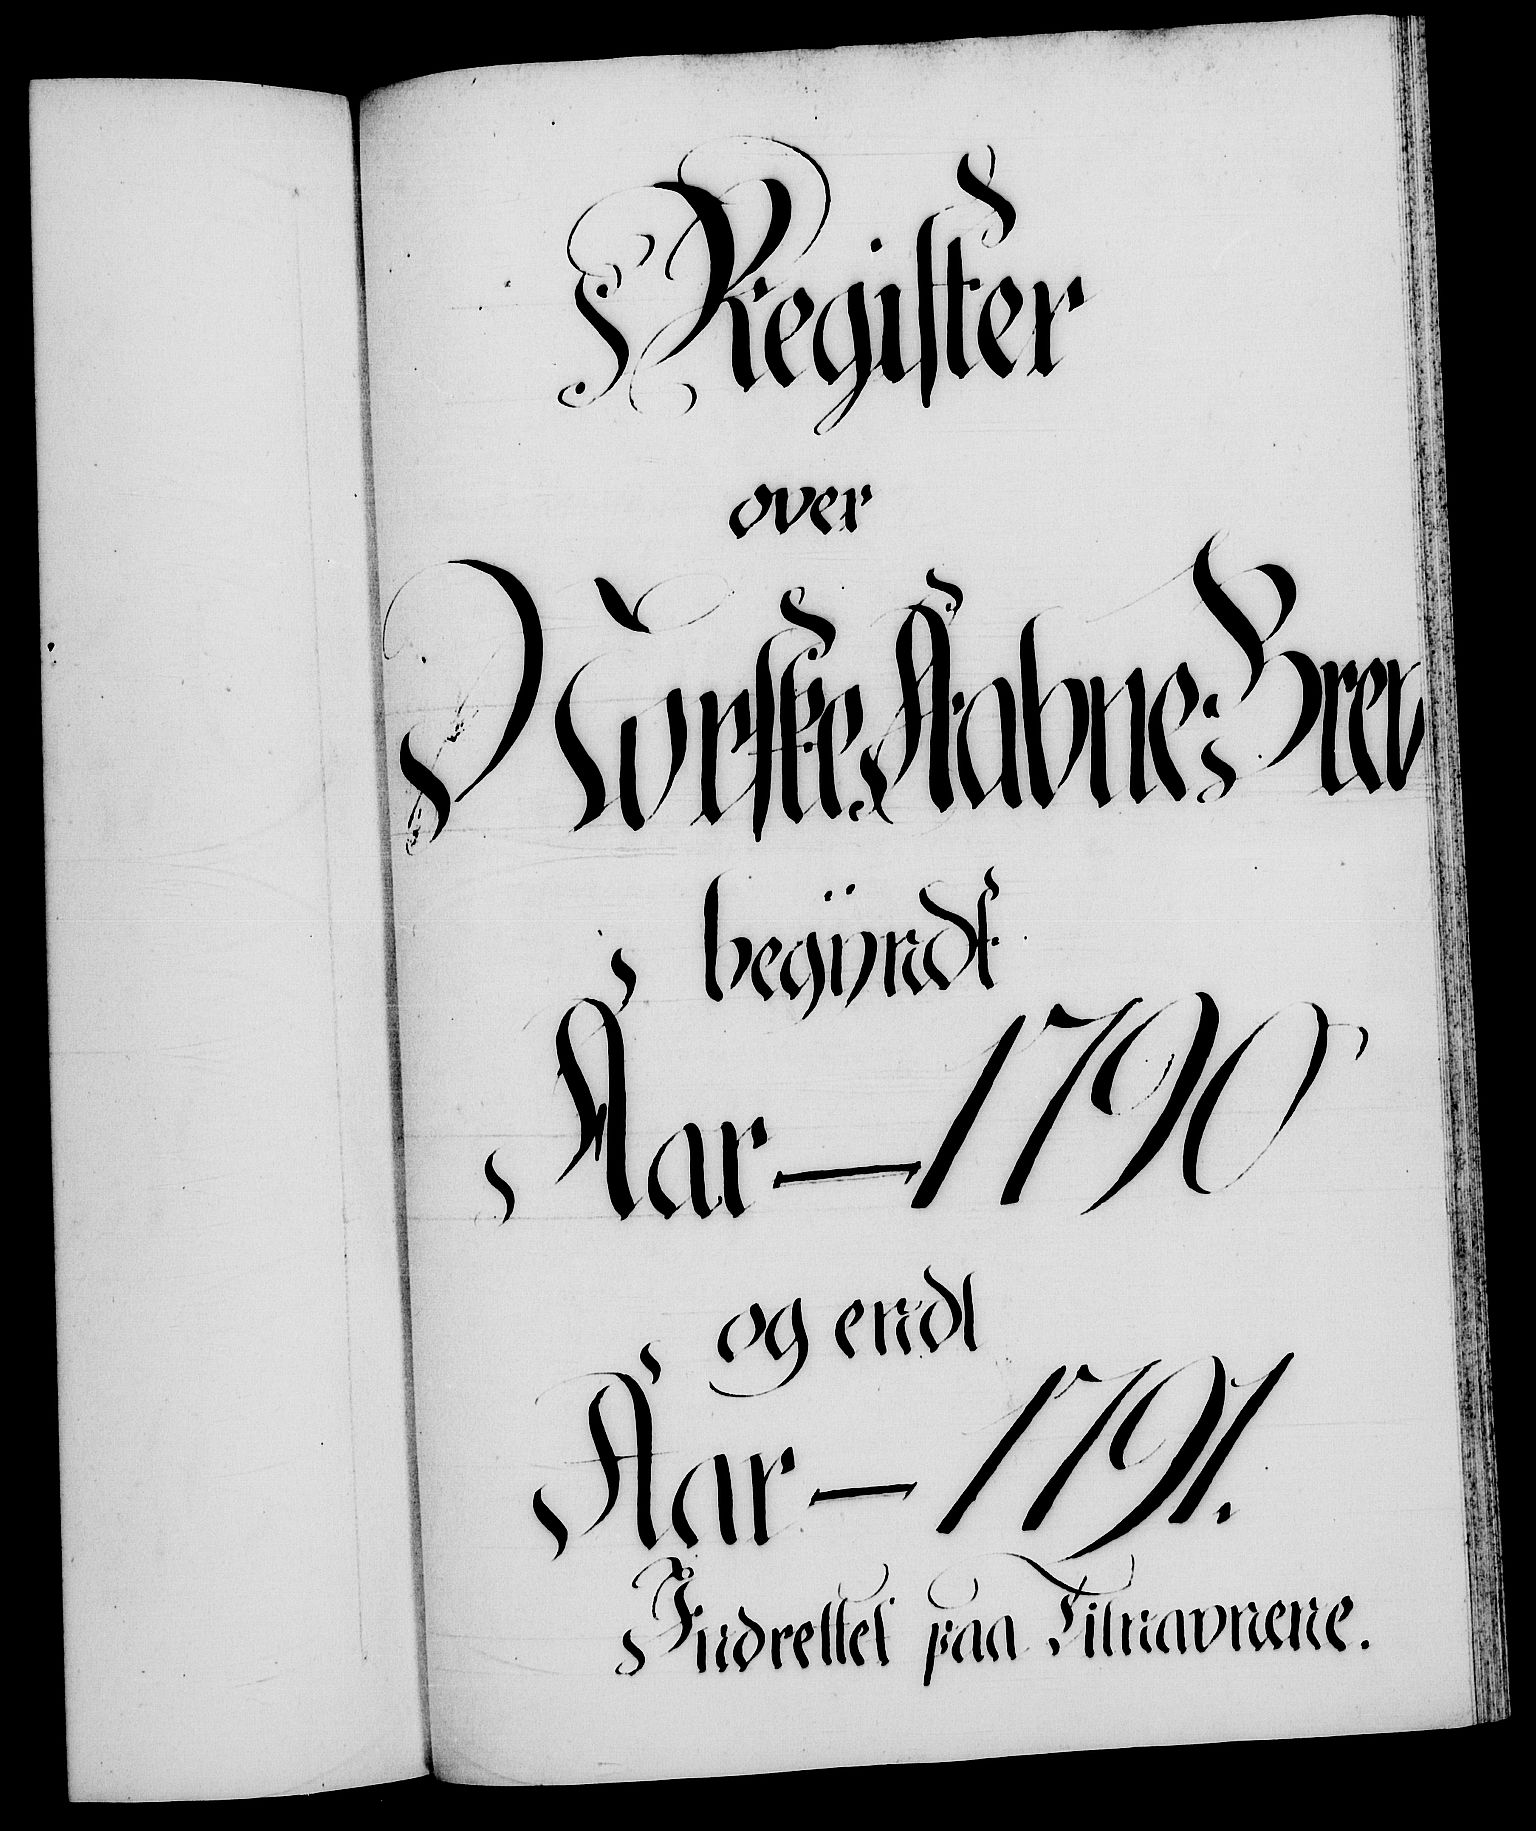 Register
over
Norske Aabne-Brev
begÿndt
Aar — 1790
og endt
Aar — 1791.
Indrettet paa Tilnavnene.